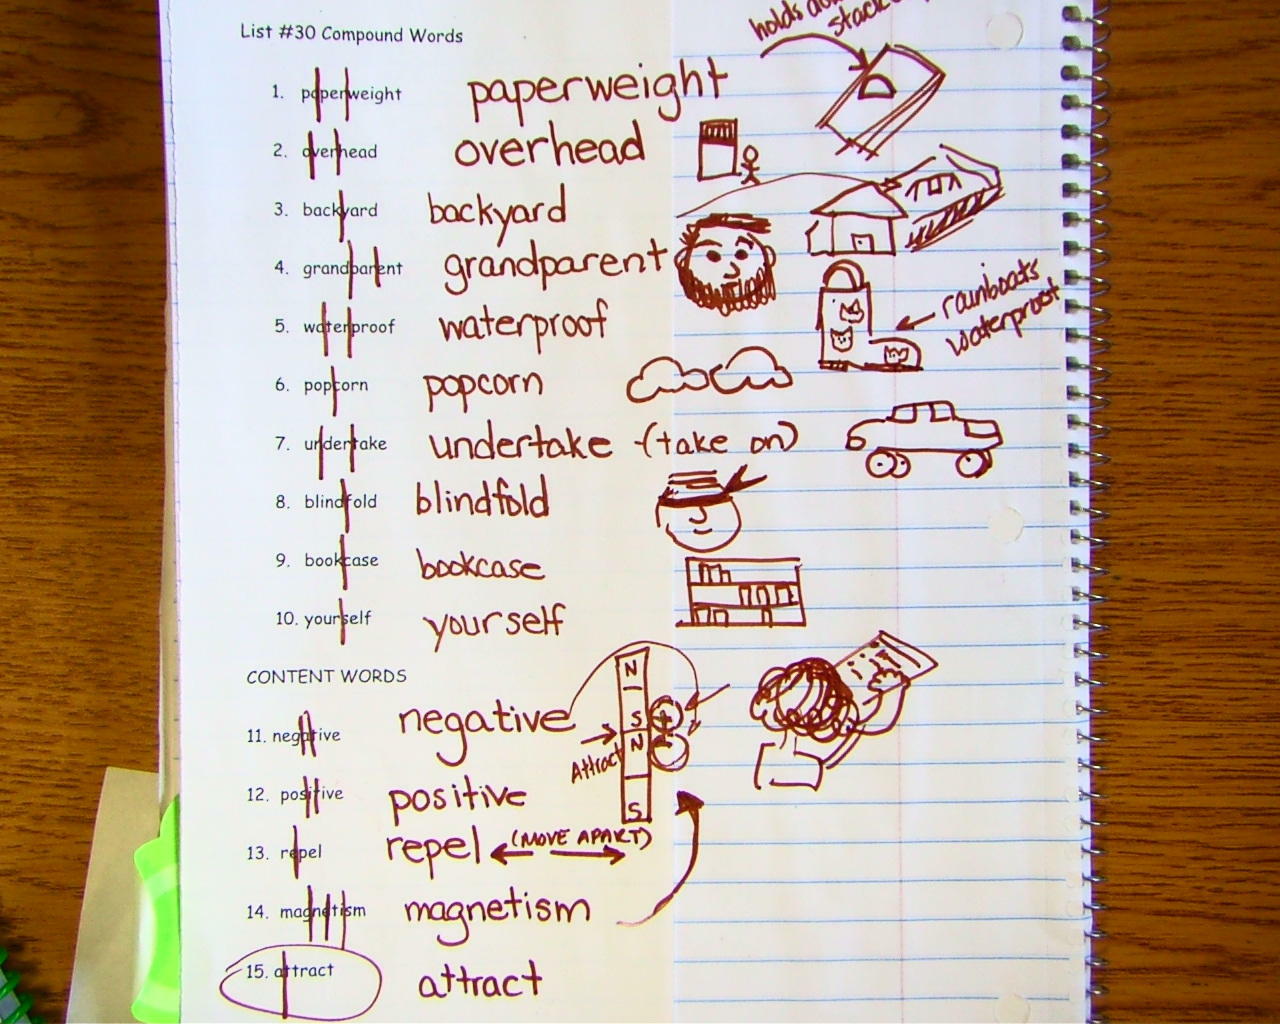 holds
stack
List #30 Compound Words
1. paperweight paperweight
2. overhead overhead
3. backyard backyard
4. grandparent grandparent
5. waterproof waterproof
rainboats
waterproost
6. popcorn popcorn
7. undertake undertake (take on)
8. blindfold blindfold
9. bookcase bookcase
10. yourself yourself
CONTENT WORDS
N
S
N
S
Attract
11. negative negative
12. positive positive
13. repel repel (MOVE APART)
14. magnetism magnetism
15. attract attract